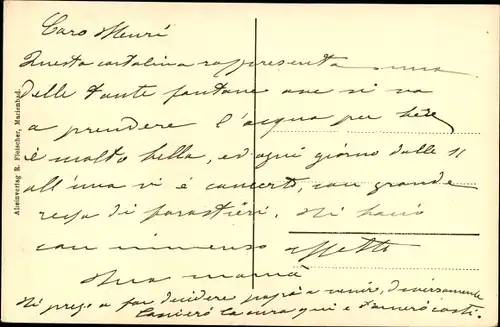 Caro Menri
Questa cartolina rappresenta una
delle tante fontane ove si va
a prendere l'acqua per bere
è molto bella, ed ogni giorno dalle 11
all'una vi è concerti, con grande
ressa di forastieri. Ti bacio
con immenso affetto
tua mamà
Ti prego a far decidere papà a venire, diversamente
lascierò la cura qui e tornerò costì.
Alleinverlag R. Fleischer, Marienbad.